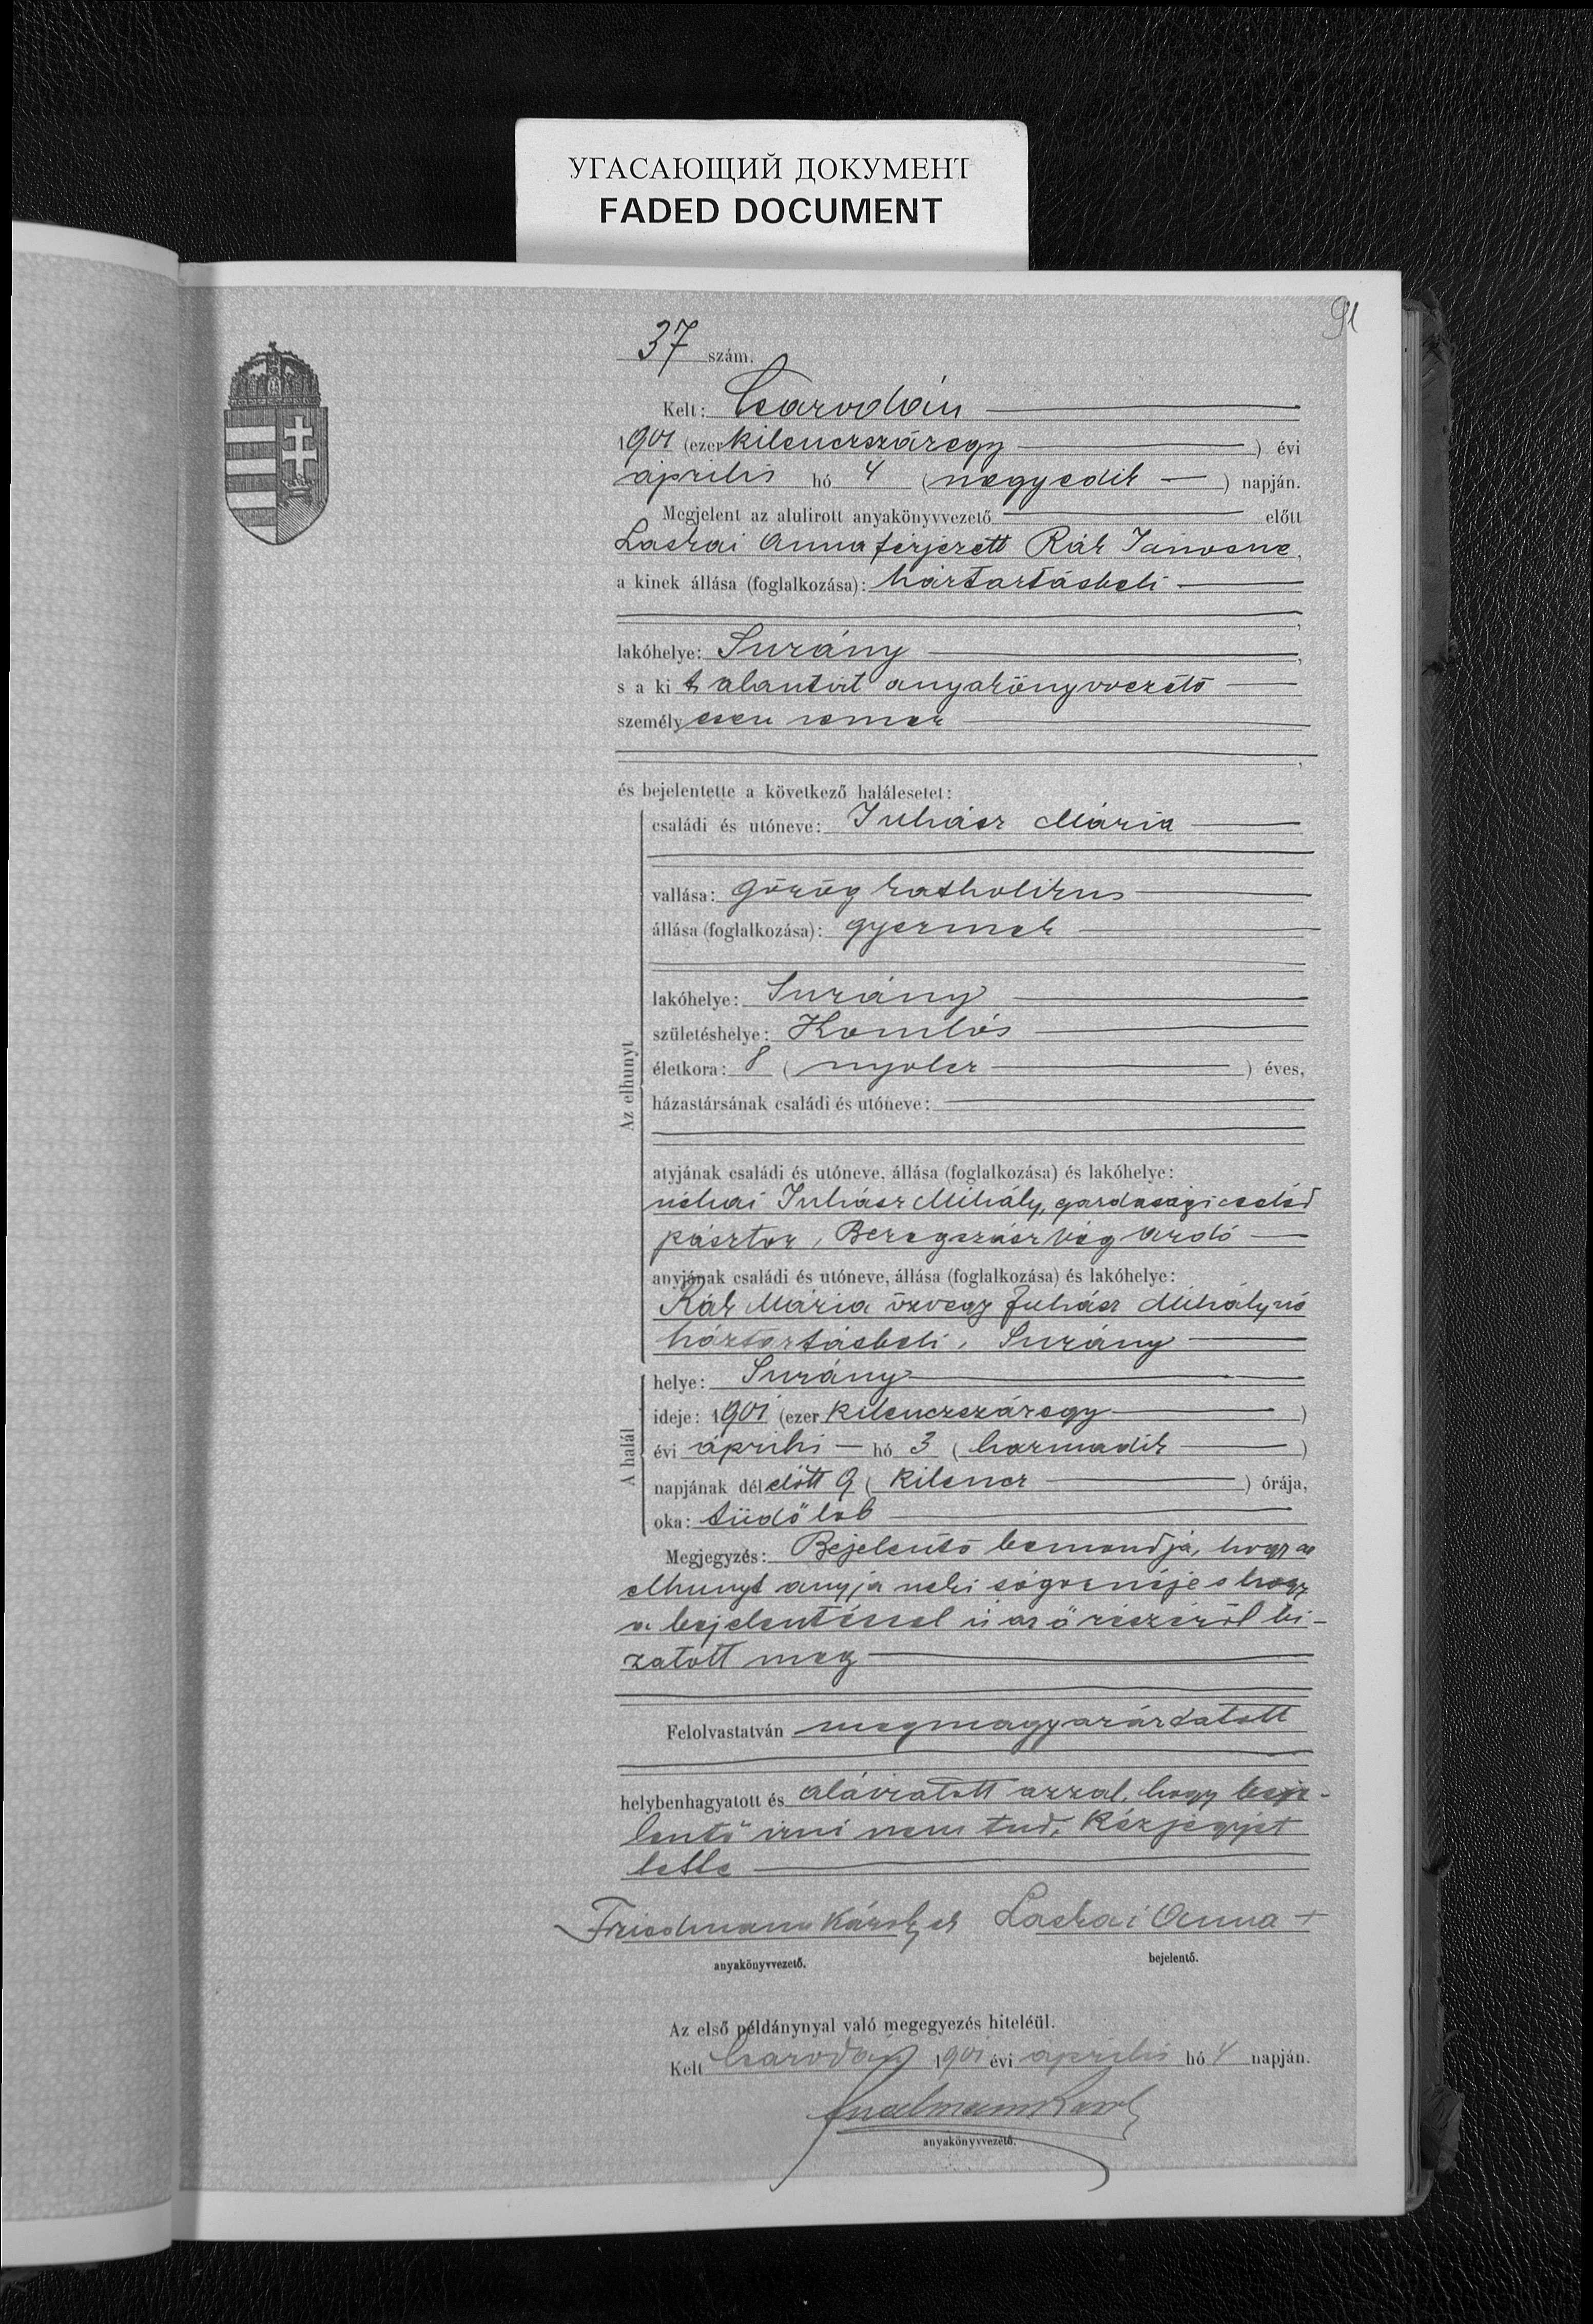 УГАСАЮЩИЙ ДОКУМЕНТ
FADED DOCUMENT
91
37 szám.
Kelt: Csarodán
1901 (ezer kilenczszázegy) évi
április hó 4 (negyedik) napján.
Megjelent az alulirott anyakönyvvezető előtt
Laskai Anna férjezett Rák Jánosné,
a kinek állása (foglalkozása): háztartásbeli
lakóhelye: Surány,
s a kit alantirt anyakönyvvezető
személyesen ismer
és bejelentette a következő halálesetet:
Az elhunyt
családi és utóneve: Juhász Mária
vallása: görög katholikus
állása (foglalkozása): gyermek
lakóhelye: Surány
születéshelye: Komlós
életkora: 8 (nyolcz) éves,
házastársának családi és utóneve:
atyjának családi és utóneve, állása (foglalkozása) és lakóhelye:
néhai Juhász Mihály, gazdasági cseléd
pásztor, Beregszász Végardó
anyjának családi és utóneve, állása (foglalkozása) és lakóhelye:
Rák Mária özvegy Juhász Mihályné
háztartásbeli, Surány
A halál
helye: Surány
ideje: 1901 (ezer kilenczszázegy)
évi április hó 3 (harmadik)
napjának délelőtt 9 (kilencz) órája,
oka: tüdőlob
Megjegyzés: Bejelentő bemondja, hogy az
elhunyt anyja neki sógornéje s hogy
a bejelentéssel is az ő részéről bi-
zatott meg
Felolvastatván megmagyaráztatott
helybenhagyatott és aláiratott azzal, hogy beje-
lentő irni nem tud, kézjegyét
tette
Friedmann Károly sk Laskai Anna +
anyakönyvvezető. bejelentő.
Az első példánynyal való megegyezés hiteléül.
Kelt Csarodán 1901 évi április hó 4 napján.
Friedmann Károly
anyakönyvvezető.